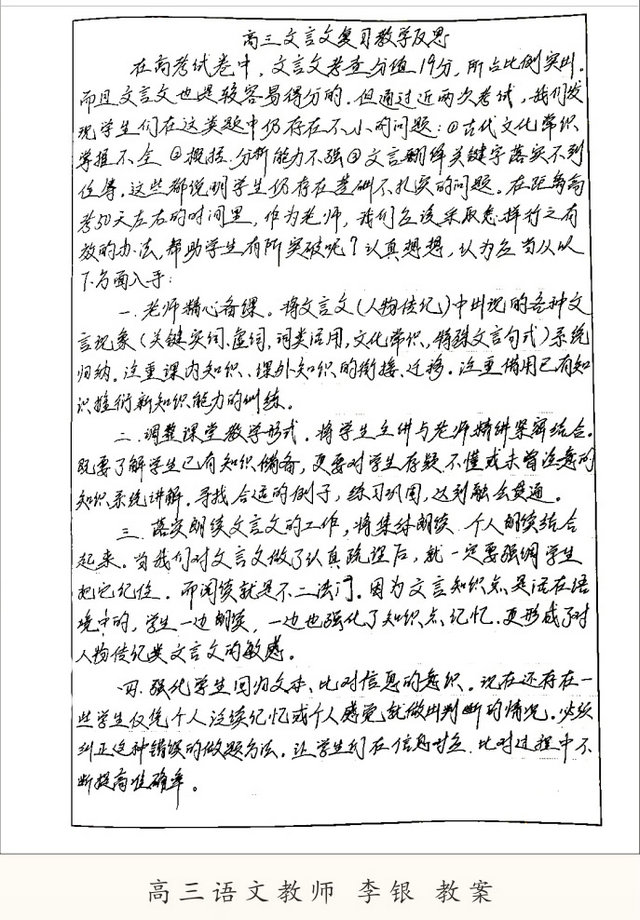 高三文言文复习教学反思
在高考试卷中，文言文考查分值19分，所占比例突出。
而且文言文也是较容易得分的。但通过近两次考试，我们发
现学生们在这类题中仍存在不小的问题：①古代文化常识
掌握不全 ②概括、分析能力不强③文言翻译关键字落实不到
位等。这些都说明学生仍存在基础不扎实的问题。在距离高
考50天左右的时间里，作为老师，我们应该采取怎样行之有
效的办法，帮助学生有所突破呢？认真想想，认为应当从以
下方面入手：
一.老师精心备课。将文言文(人物传记)中出现的各种文
言现象(关键实词、虚词，词类活用，文化常识，特殊文言句式)系统
归纳。注重课内知识、课外知识的衔接、迁移。注重借用已有知
识推衍新知识能力的训练。
二.调整课堂教学形式。将学生主讲与老师精讲紧密结合。
既要了解学生已有知识储备，更要对学生存疑、不懂或未曾注意的
知识系统讲解。寻找合适的例子，练习巩固，达到融会贯通。
三.落实朗读文言文的工作，将集体朗读、个人朗读结合
起来。当我们对文言文做了认真疏理后，就一定要强调学生
把它记住。而阅读就是不二法门。因为文言知识点是活在语
境中的，学生一边朗读，一边也强化了知识点记忆.更形成了对
人物传记类文言文的敏感。
四.强化学生回归文本、比对信息的意识。现在还存在一
些学生仅凭个人泛读记忆或个人感觉就做出判断的情况。必须
纠正这种错误的做题方法。让学生们在信息对应、比对过程中不
断提高准确率。
高三语文教师 李银 教案